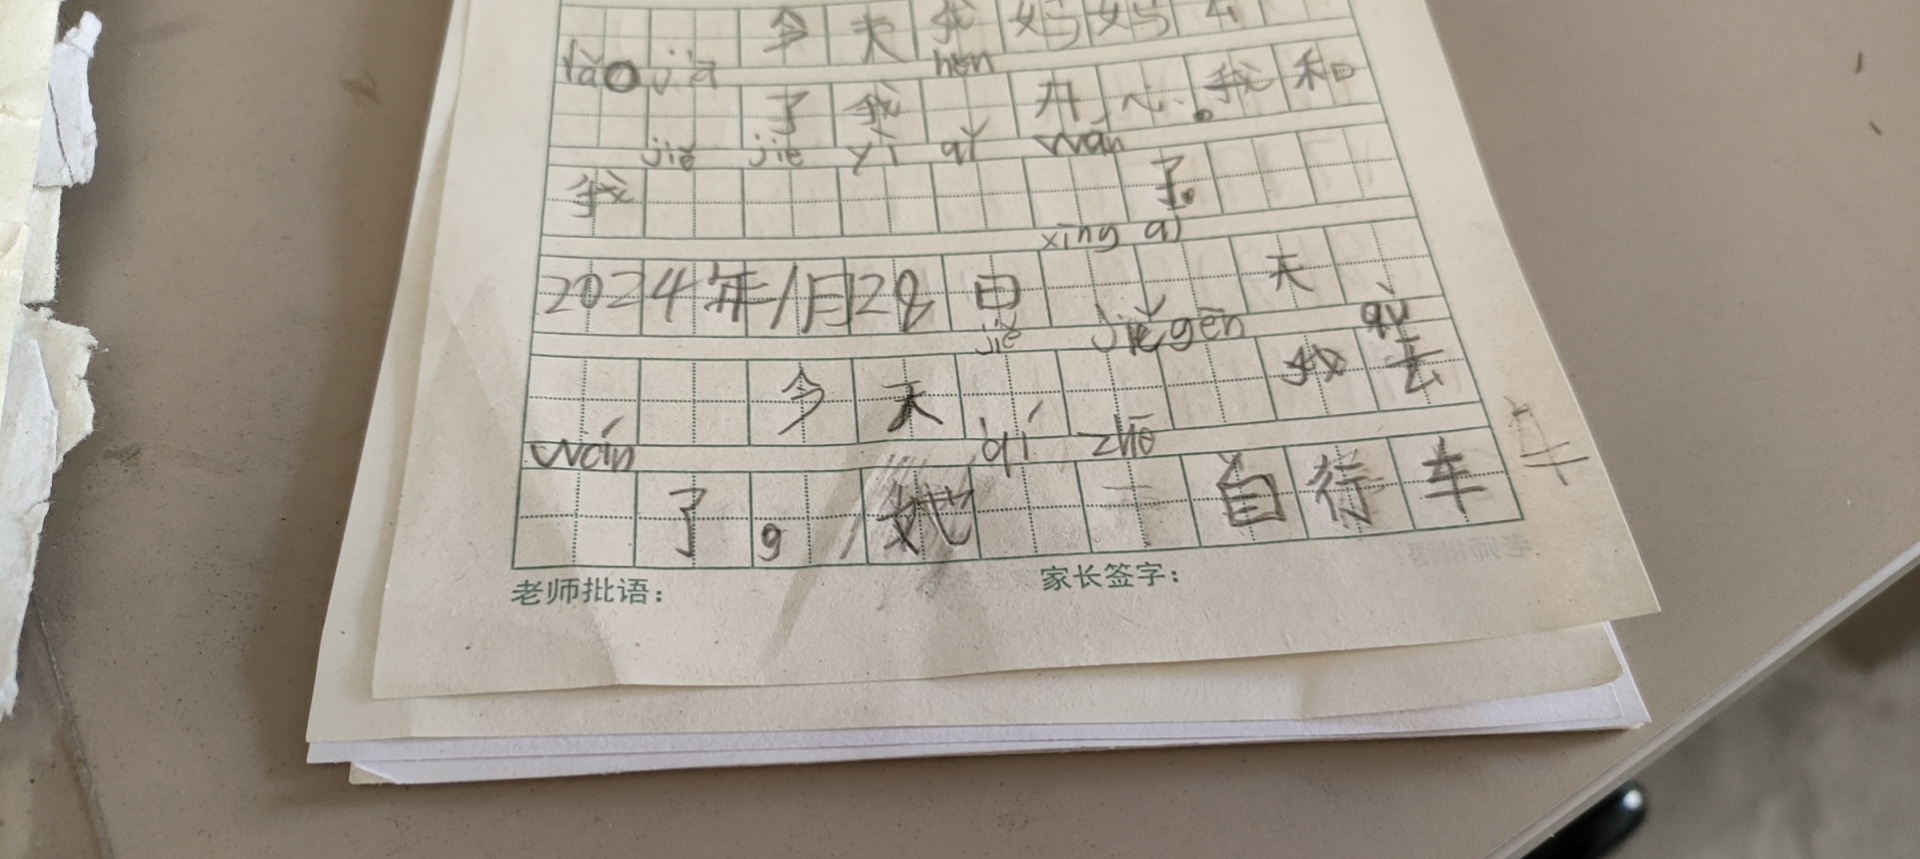 今天我妈妈去
lǎo jiā hěn
了我 开心。我和
jiě jie yì qǐ wán
我 了。
xīng qī
2024年1月28日 天
jiě jiě gēn qù
今天 我去
wán qí zhe
了,她 自行车 车
老师批语： 家长签字：